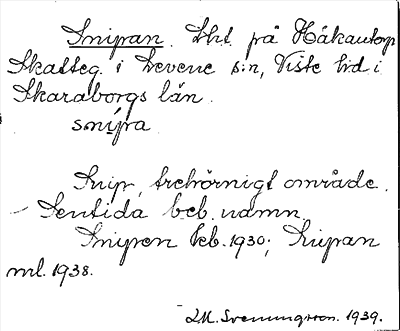 Snipan. Lht på Håkantorp
Skatteg. i Levene s:n, Viste hd i
Skaraborgs län.
snípa
Snip, trehörnigt område.
– Sentida beb. namn.
Snipen kb. 1930; Snipan
ml. 1938.
S. Svenningsson. 1939.